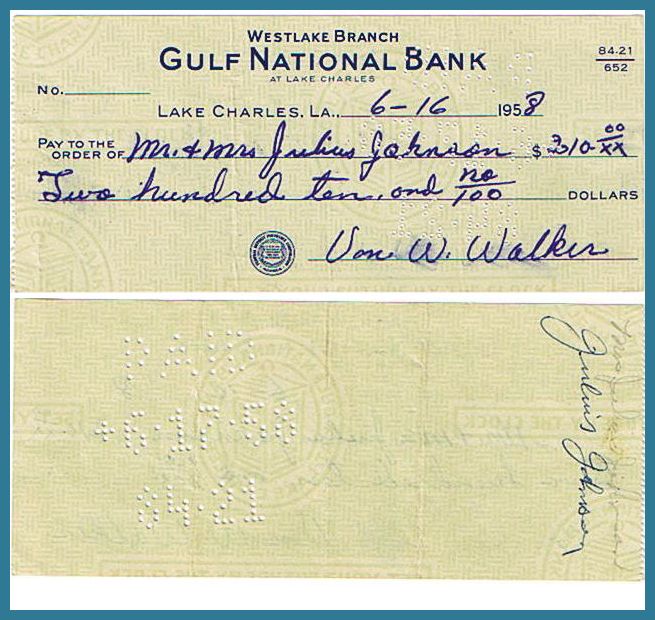 WESTLAKE BRANCH
GULF NATIONAL BANK
AT LAKE CHARLES
84-21
652
No.
LAKE CHARLES, LA., 6-16 1958
PAY TO THE
ORDER OF Mr. & Mrs Julius Johnson $ 210 00/XX
Two hundred ten and no/100 DOLLARS
Von W. Walker
PAID
84-21
Julius Johnson